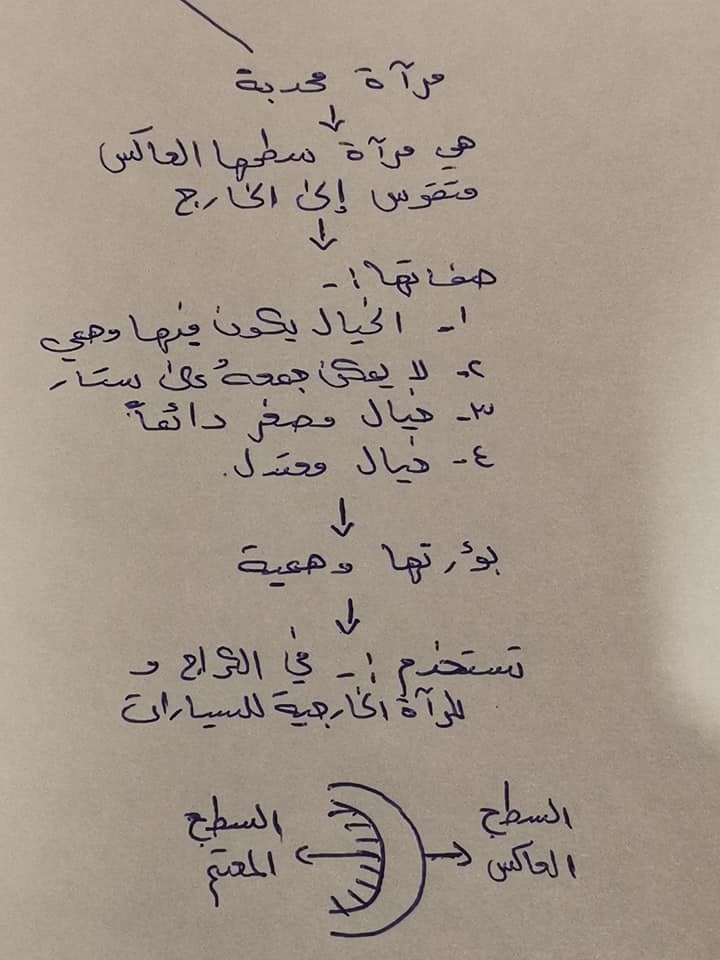 مرآة محدبة
↓
هي مرآة سطحها العاكس
متقوس إلى الخارج
↓
صفاتها :-
١- الخيال يكون فيها وهمي
٢- لا يمكن جمعهُ على ستار
٣- خيال مصغر دائماً.
٤- خيال معتدل.
↓
بؤرتها وهمية
↓
تستخدم :- في الكراج و
المرآة الخارجية للسيارات
السطح
العاكس
السطح
المعتم